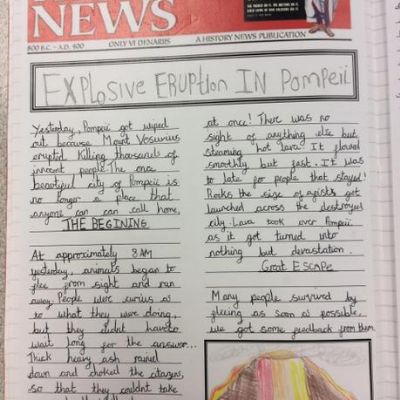 NEWS
800 B.C. - A.D. 500
ONLY VI DENARIS
A HISTORY NEWS PUBLICATION
EXPlosive ERuption IN Pompeii
Yesterday, Pompeii got wiped
out because Mount Vesuvius
erupted killing thousands of
innocent people. The once
beautiful city of Pompeii is
no longer a place that
anyone can can call home.
THE BEGINING
At approximately 8AM
yesterday, animals began to
flee from sight and ran
away. People were curius as
to what they were doing,
but they didnt have to
wait long for the answer...
Thick heavy ash rained
down and choked the citazens,
so that they couldnt take
at once! There was no
sight of anything else but
steaming hot lava. It flowed
smoothly but fast. It was
to late for people that stayed!
Rocks the size of
got
launched across the destroyed
city. Lava took over Pompeii
as it got turned into
nothing but devastation.
Great ESCAPE
Many people survived by
fleeing as soon as possible.
we got some feedback from them.